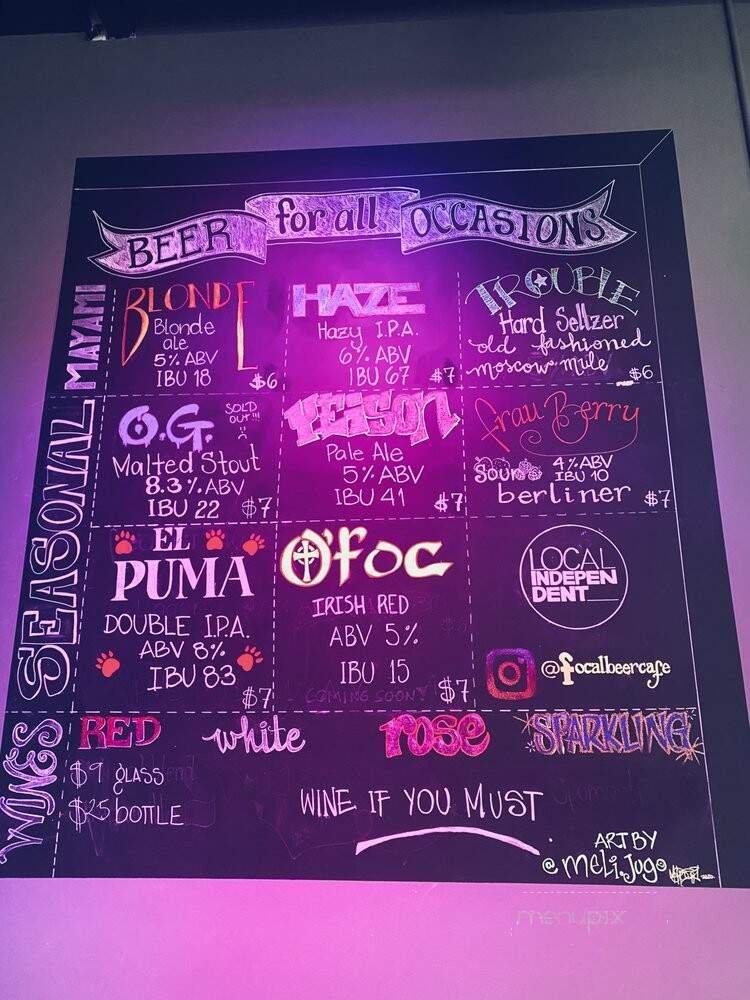 BEER for all OCCASIONS
MAYAMI
BLONDE
Blonde
ale
5% ABV
IBU 18
$6
HAZE
Hazy I.P.A.
6% ABV
IBU 67
$7
TROUBLE
Hard Seltzer
old fashioned
moscow mule
$6
SEASONAL
O.G.
SOLD
OUT!!!
Malted Stout
8.3% ABV
IBU 22
$7
Pale Ale
5% ABV
IBU 41
$7
frau Berry
Sour
4% ABV
IBU 10
berliner
$7
EL
PUMA
DOUBLE I.P.A.
ABV 8%
IBU 83
$7
O'foc
IRISH RED
ABV 5%
IBU 15
COMING SOON
$7
LOCAL
INDEPEN
DENT
@focalbeercafe
WINES
RED
white
rose
SPARKLING
$9 glass
$25 bottle
WINE IF YOU MUST
ART BY
@meli.jugo
menupix